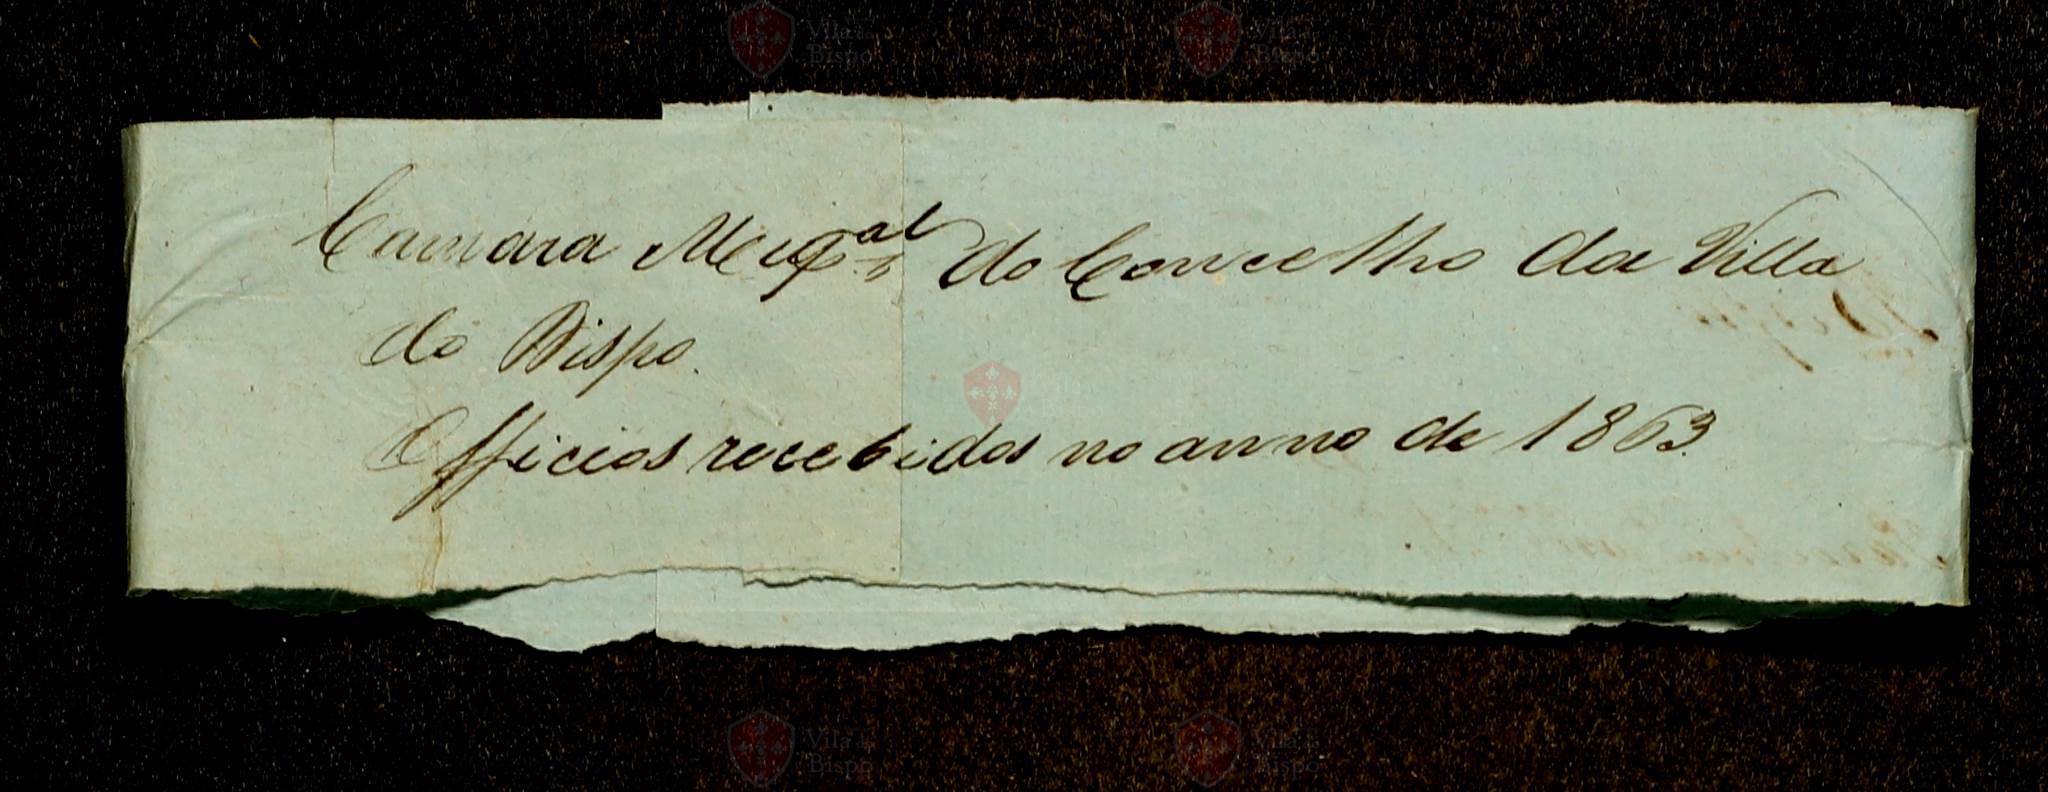 Vila do
Bispo
Vila do
Bispo
Camara Mup.al do Concelho da Villa
do Bispo.
Officios recebidos no anno de 1863.
Vila do
Bispo
Vila do
Bispo
Vila do
Bispo